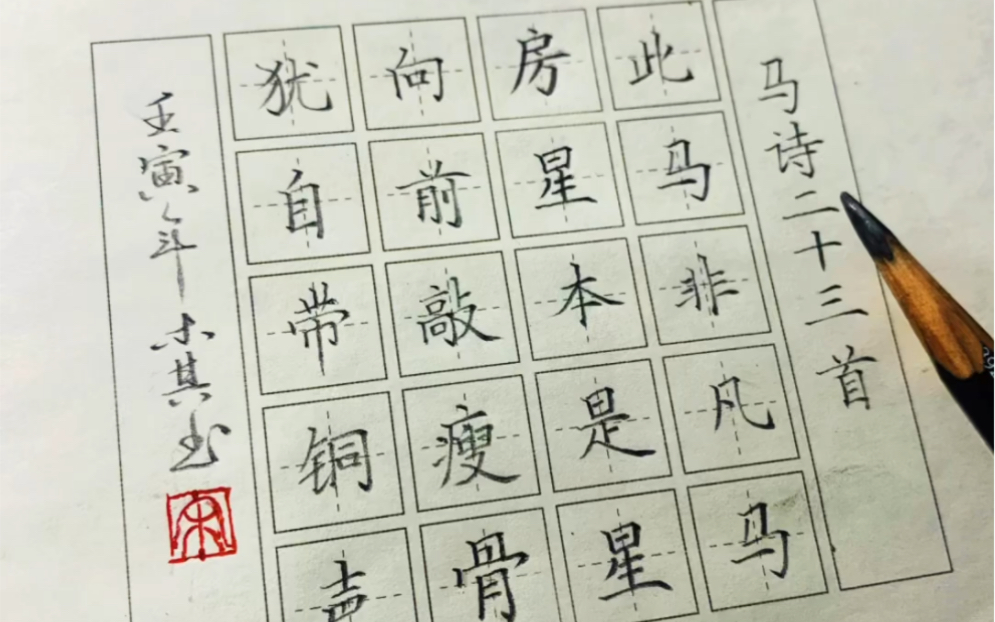 马诗二十三首
此马非凡马
房星本是星
向前敲瘦骨
犹自带铜声
壬寅年 其书